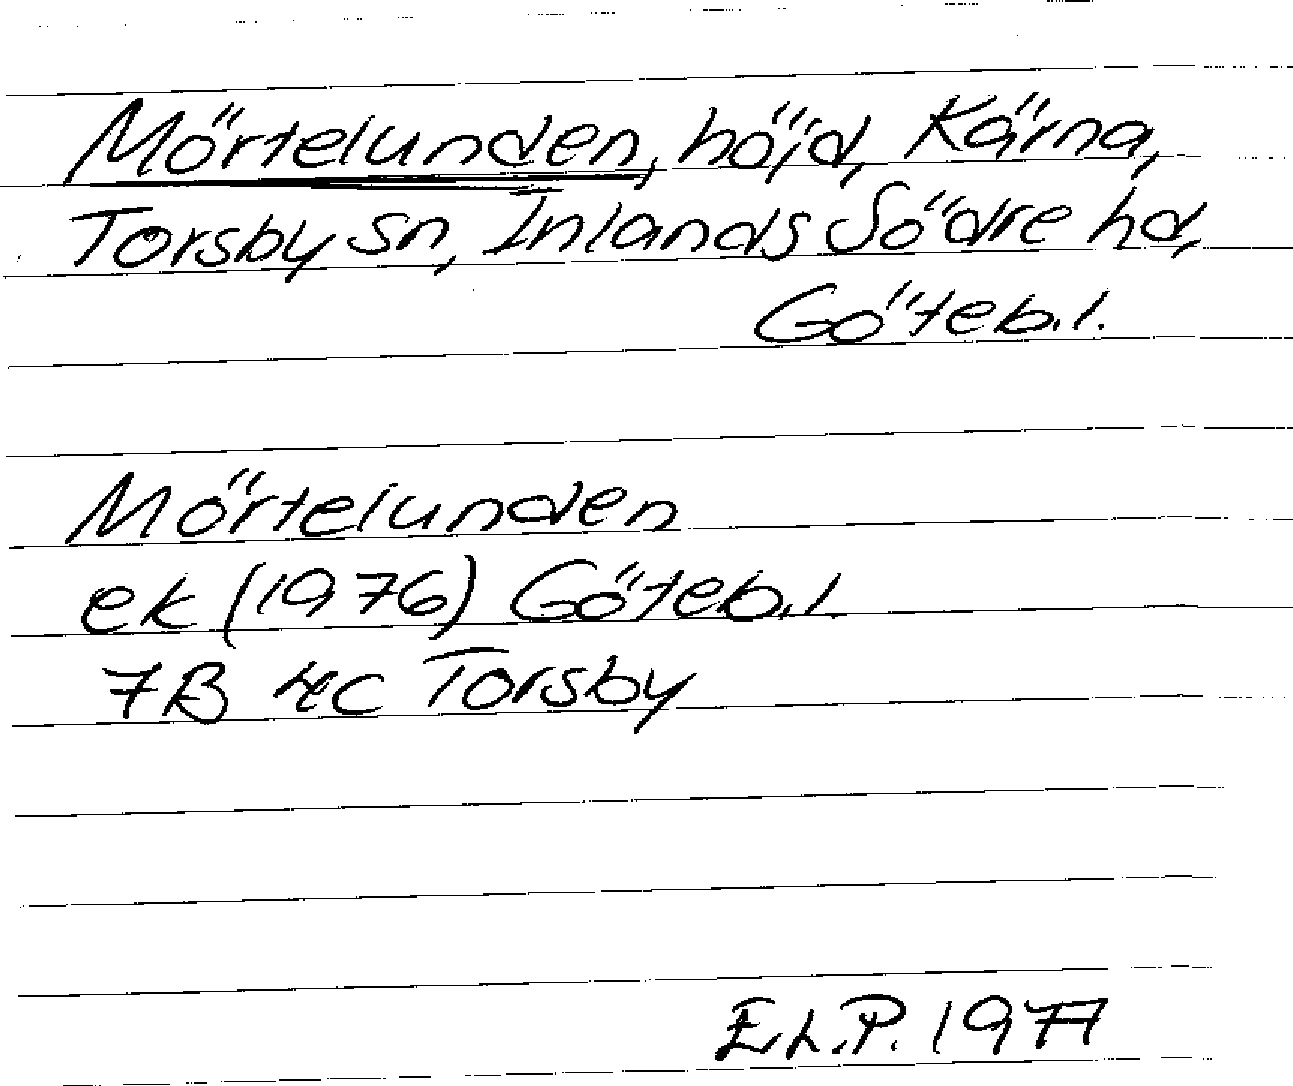 Mörtelunden, höjd, Kärna,
Torsby sn, Inlands Södre hd,
Göteb.l.
Mörtelunden
ek (1976) Göteb.l.
7B 4c Torsby
E.L.P. 1977